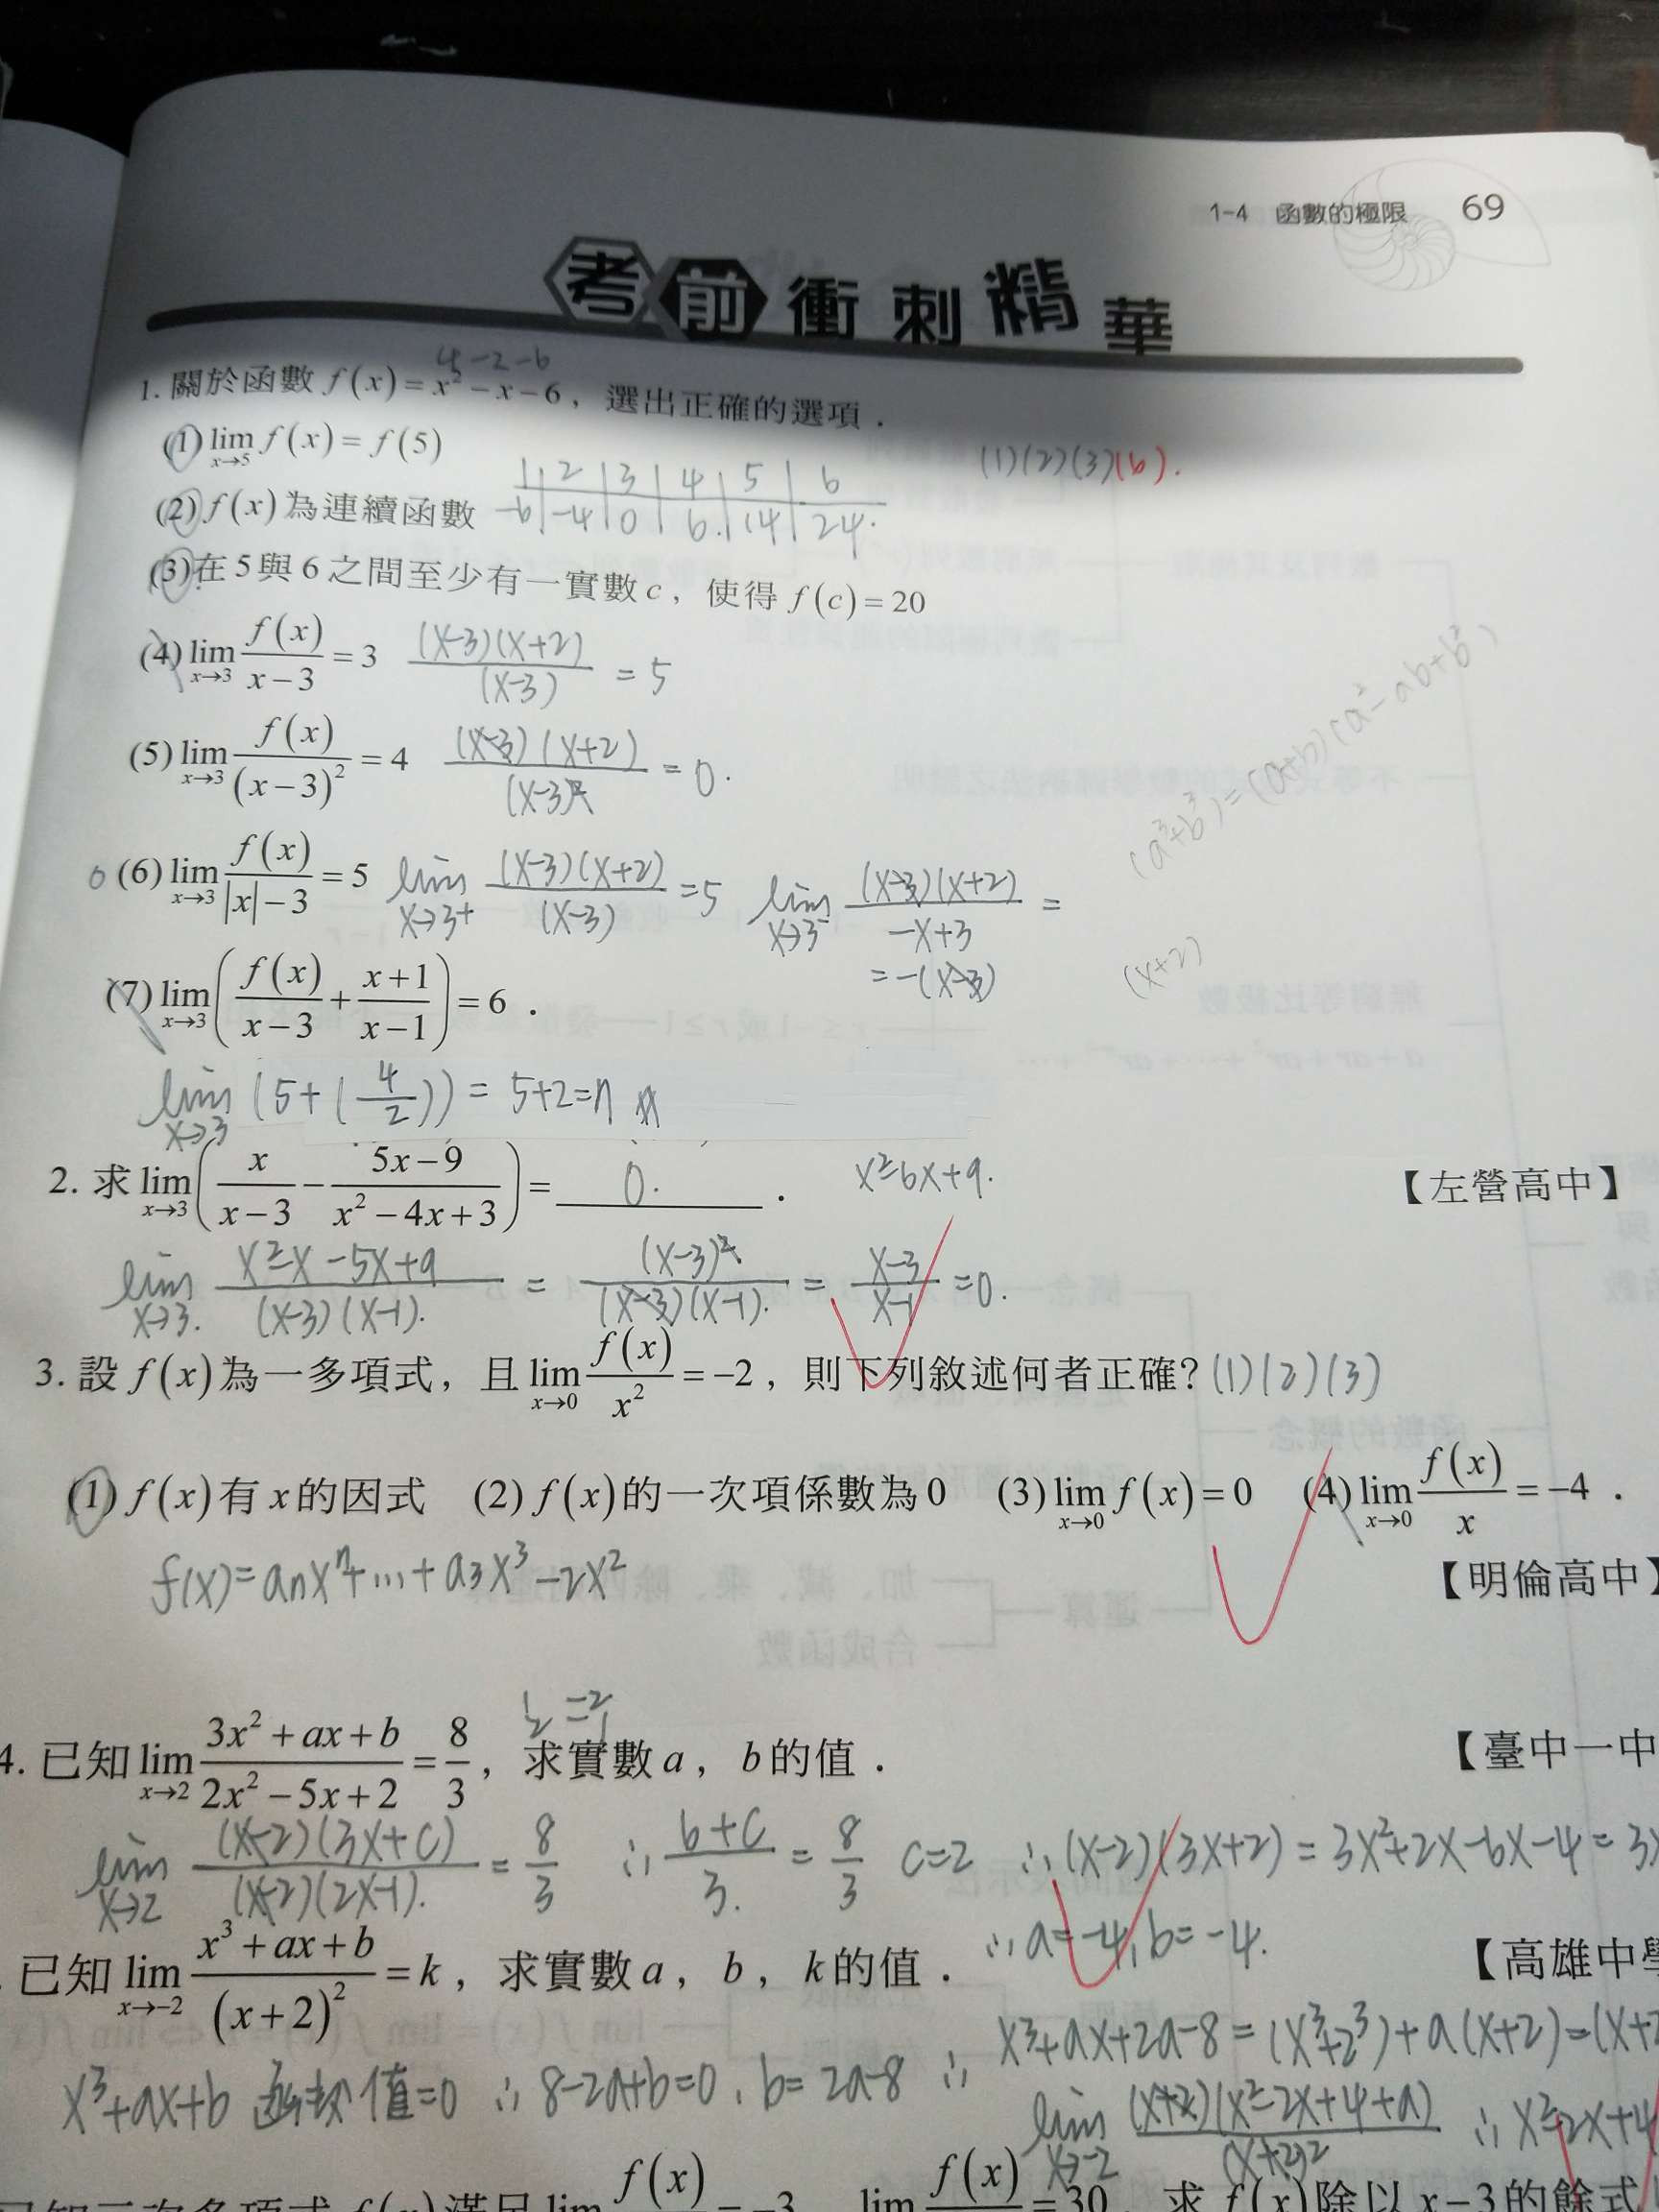 1-4 函數的極限 69
考前衝刺精華
4-2-6
1. 關於函數 f(x)=x²-x-6，選出正確的選項．
(1) lim_{x→5} f(x)=f(5)
(1)(2)(3)(6).
1 | 2 | 3 | 4 | 5 | 6
(2) f(x)為連續函數
-6 | -4 | 0 | 6. | 14 | 24.
(3)在5與6之間至少有一實數c，使得 f(c)=20
(4) lim_{x→3} f(x)/(x-3) = 3 (x-3)(x+2)/(x-3) = 5
(5) lim_{x→3} f(x)/(x-3)² = 4 (x-3)(x+2)/(x-3)² = 0.
(a³+b³)=(a+b)(a²-ab+b²)
(6) lim_{x→3} f(x)/(|x|-3) = 5 lim_{x→3+} (x-3)(x+2)/(x-3) = 5 lim_{x→3-} (x-3)(x+2)/(-x+3) =
=-(x-3)
(x+2)
(7) lim_{x→3} (f(x)/(x-3) + (x+1)/(x-1)) = 6．
lim_{x→3} (5+(4/2)) = 5+2=7
2. 求 lim_{x→3} (x/(x-3) - (5x-9)/(x²-4x+3)) = 0. ． x²-6x+9. 【左營高中】
lim_{x→3.} (x²-x-5x+9)/((x-3)(x-1).) = (x-3)²/((x-3)(x-1).) = (x-3)/(x-1) = 0.
3. 設 f(x)為一多項式，且 lim_{x→0} f(x)/x² = -2，則下列敘述何者正確? (1)(2)(3)
(1) f(x)有x的因式 (2) f(x)的一次項係數為0 (3) lim_{x→0} f(x)=0 (4) lim_{x→0} f(x)/x = -4．
【明倫高中】
f(x)=anxⁿ+...+a3x³-2x²
4. 已知 lim_{x→2} (3x²+ax+b)/(2x²-5x+2) = 8/3，求實數a，b的值． 【臺中一中
lim_{x→2} (x-2)(3x+c)/((x-2)(2x-1).) = 8/3 ∴ (6+c)/3. = 8/3 c=2 ∴(x-2)(3x+2)=3x²+2x-6x-4=3x
∴a=-4, b=-4.
. 已知 lim_{x→-2} (x³+ax+b)/(x+2)² = k，求實數a，b，k的值． 【高雄中學
x³+ax+2a-8=(x³+2³)+a(x+2)=(x+2
x³+ax+b 函數值=0 ∴8-2a+b=0, b=2a-8 ∴
lim_{x→-2} (x+2)(x²-2x+4+a)/(x+2)² ∴x²-2x+4
已知三次多項式 f(x)滿足 lim f(x) = -3 lim f(x) = 30，求 f(x)除以 x-3的餘式